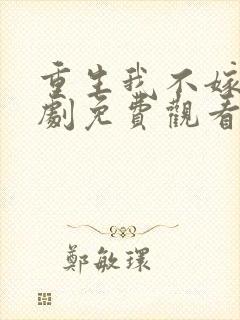 重生我不嫁
劇免費觀看
鄭敏環